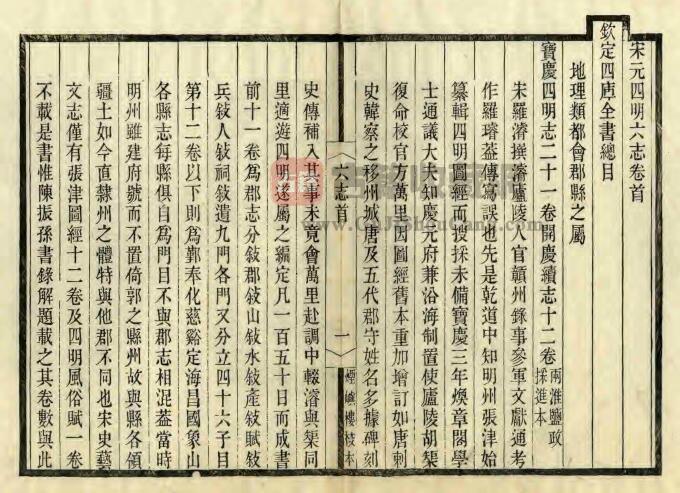 宋元四明六志卷首
欽定四庫全書總目
地理類都會郡縣之屬
寶慶四明志二十一卷開慶續志十二卷兩淮鹽政採進本
宋羅濬撰濬廬陵人官贛州錄事參軍文獻通考
作羅璿葢傳寫誤也先是乾道中知明州張津始
纂輯四明圖經而搜採未備寶慶三年煥章閣學
士通議大夫知慶元府兼沿海制置使廬陵胡榘
復命校官方萬里因圖經舊本重加增訂如唐刺
史韓察之移州城唐及五代郡守姓名多據碑刻
六志首
一
煙嶼樓校本
史傳補入其事未竟會萬里赴調中輟濬與榘同
里適遊四明遂屬之編定凡一百五十日而成書
前十一卷爲郡志分敍郡敍山敍水敍產敍賦敍
兵敍人敍祠敍遺九門各門又分立四十六子目
第十二卷以下則爲鄞奉化慈谿定海昌國象山
各縣志每縣俱自爲門目不與郡志相混葢當時
明州雖建府號而不置倚郭之縣州故與縣各領
疆土如今直隸州之體特與他郡不同也宋史藝
文志僅有張津圖經十二卷及四明風俗賦一卷
不載是書惟陳振孫書錄解題載之其卷數與此